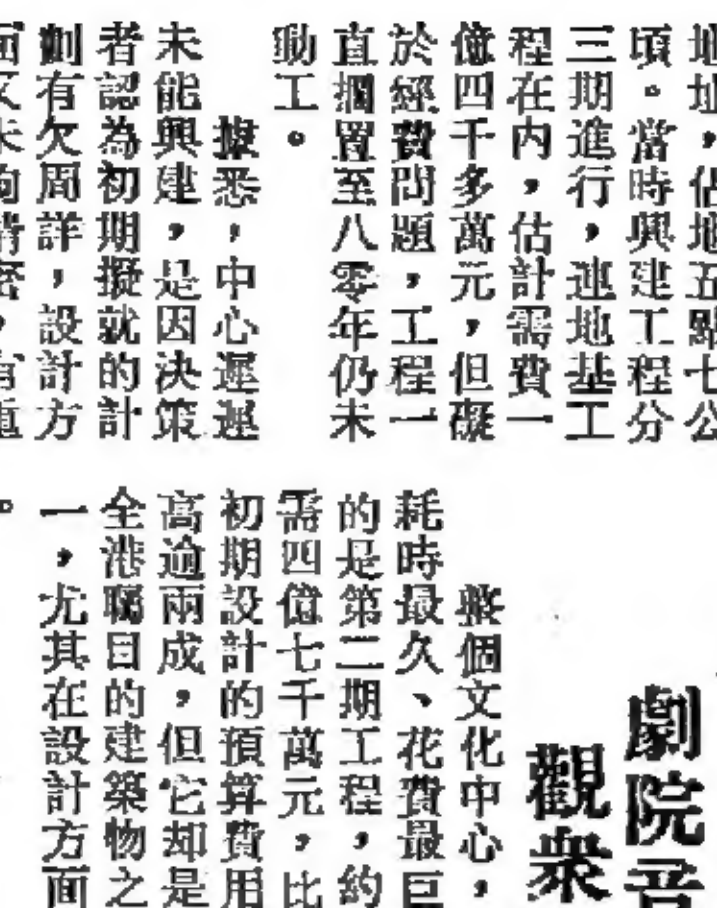 地址，佔地五點七公
頃。當時興建工程分
三期進行，連地基工
程在內，估計需費一
億四千多萬元，但礙
於經費問題，工程一
直擱置至八零年仍未
動工。
據悉，中心遲遲
未能興建，是因決策
者認為初期擬就的計
劃有欠周詳，設計方
劇院音
觀衆
整個文化中心，
耗時最久、花費最巨
的是第二期工程，約
需四億七千萬元，比
初期設計的預算費用
高逾兩成，但它却是
全港矚目的建築物之
一，尤其在設計方面
。